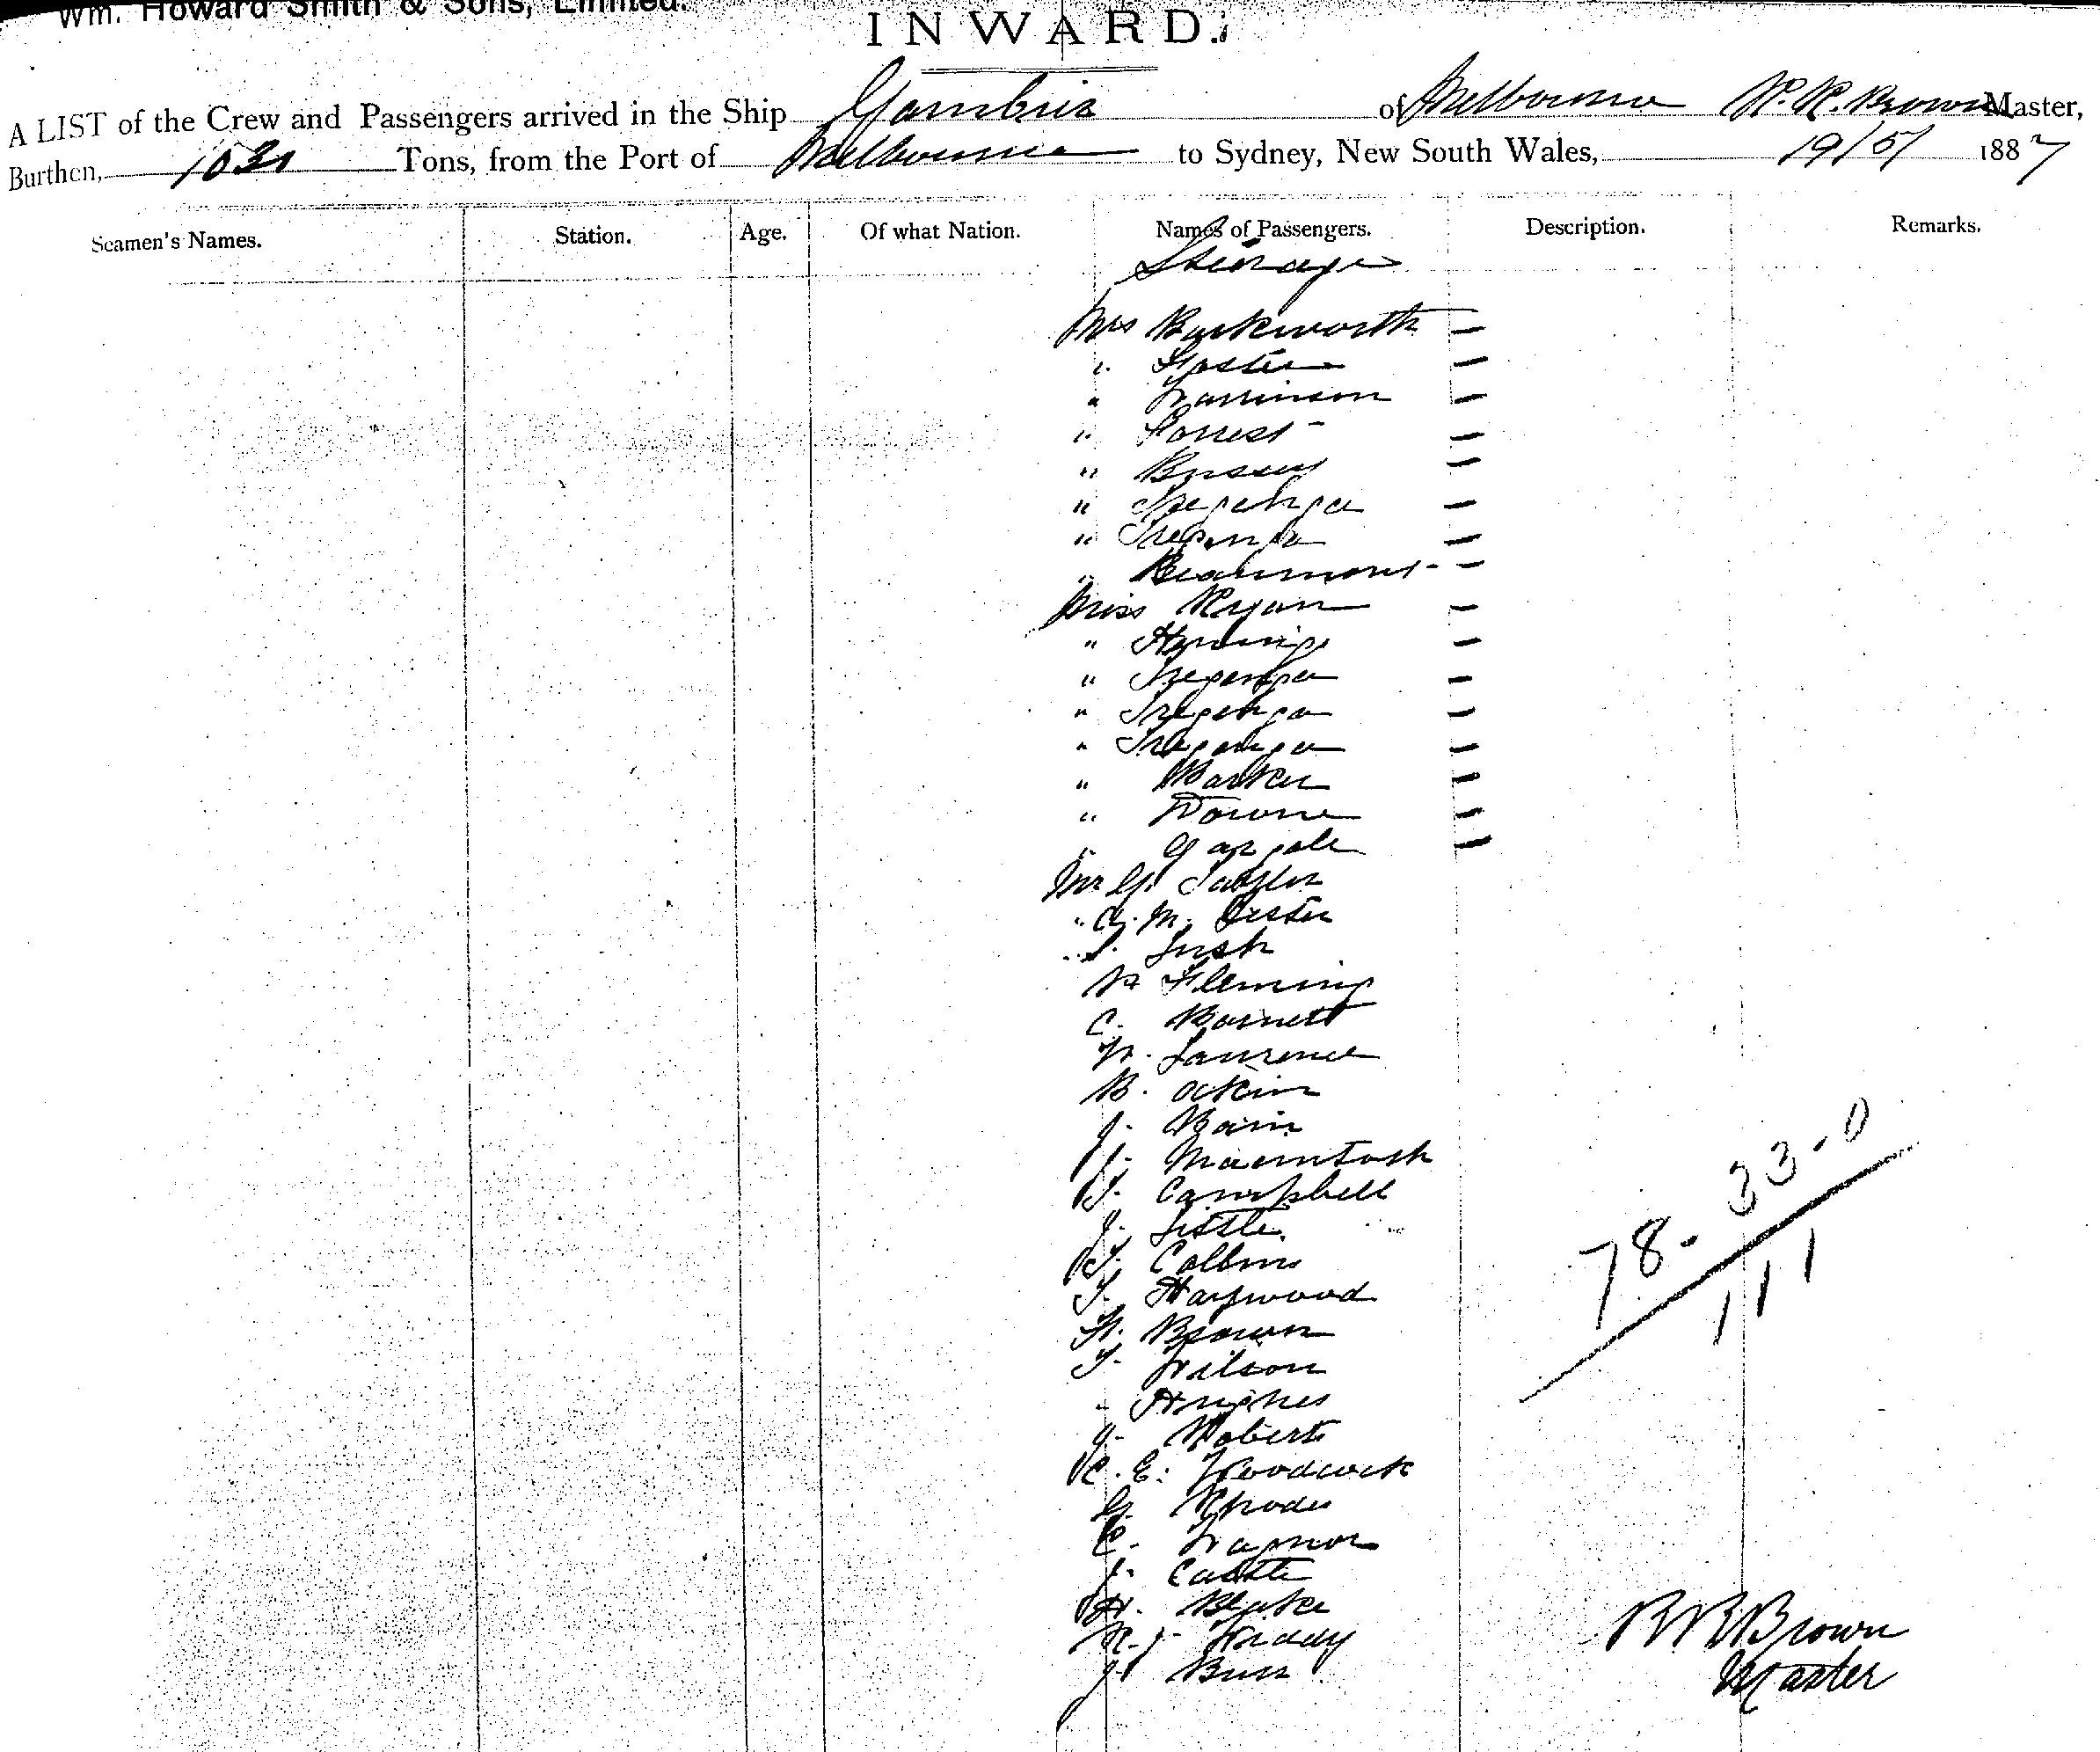 Wm. Howard Smith & Sons, Limited.
INWARD.
A LIST of the Crew and Passengers arrived in the Ship Gambier of Melbourne R. R. Brown Master,
Burthen, Tons, from the Port of Melbourne to Sydney, New South Wales, 19/5/ 1887
Seamen's Names. Station. Age. Of what Nation. Names of Passengers. Description. Remarks.
Steerage
Mrs Barkworth —
" Foster —
" Harrinson —
" Forrest —
" Bussey —
" Tregenza —
" Tregenza —
" Beaumont —
Miss Ryan —
" Fleming —
" Tregenza —
" Tregenza —
" Tregenza —
" Barker —
" Downe —
" Gargale —
Mr G. Taylor
" C. M. Lester
" S. Lush
Fleming
C. Barnett
W. Lawrence
B. Atkin
J. Bain
J. Macintosh
J. Campbell
J. Little
T. Collins
T. Haywood
H. Brown
T. Wilson
" Hughes
G. Roberts
C. E. Woodcock
G. Rhodes
C. Traynor
J. Castle
H. Blake
R. J. Waddy
J. Buss
78. 33-0
111
R R Brown
Master